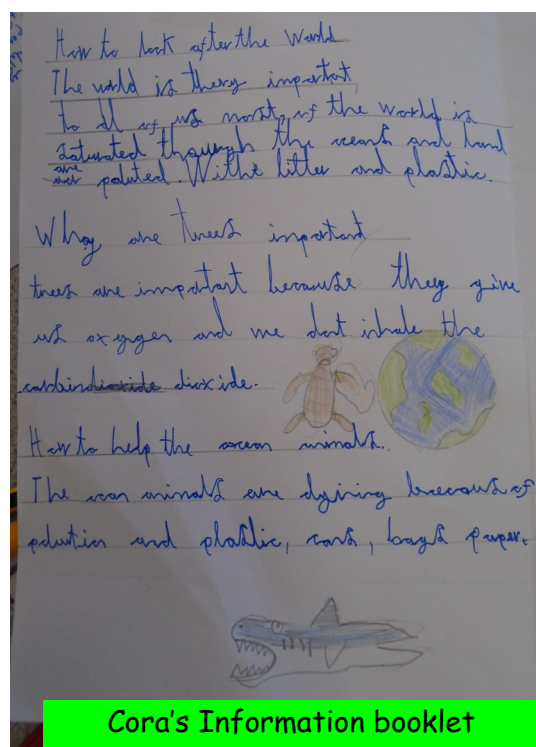 How to look after the World
The world is thery important
to all of us most of the world is
saturated through the oceans and land
are poluted. Withe litter and plastic.
Whoy are trees important
trees are important because they give
us oxygen and we dont inhale the
carbin dioxide.
How to help the ocean animals.
The ocan animals are dyining becaous of
polution and plastic, cans, bags paper.
Cora's Information booklet